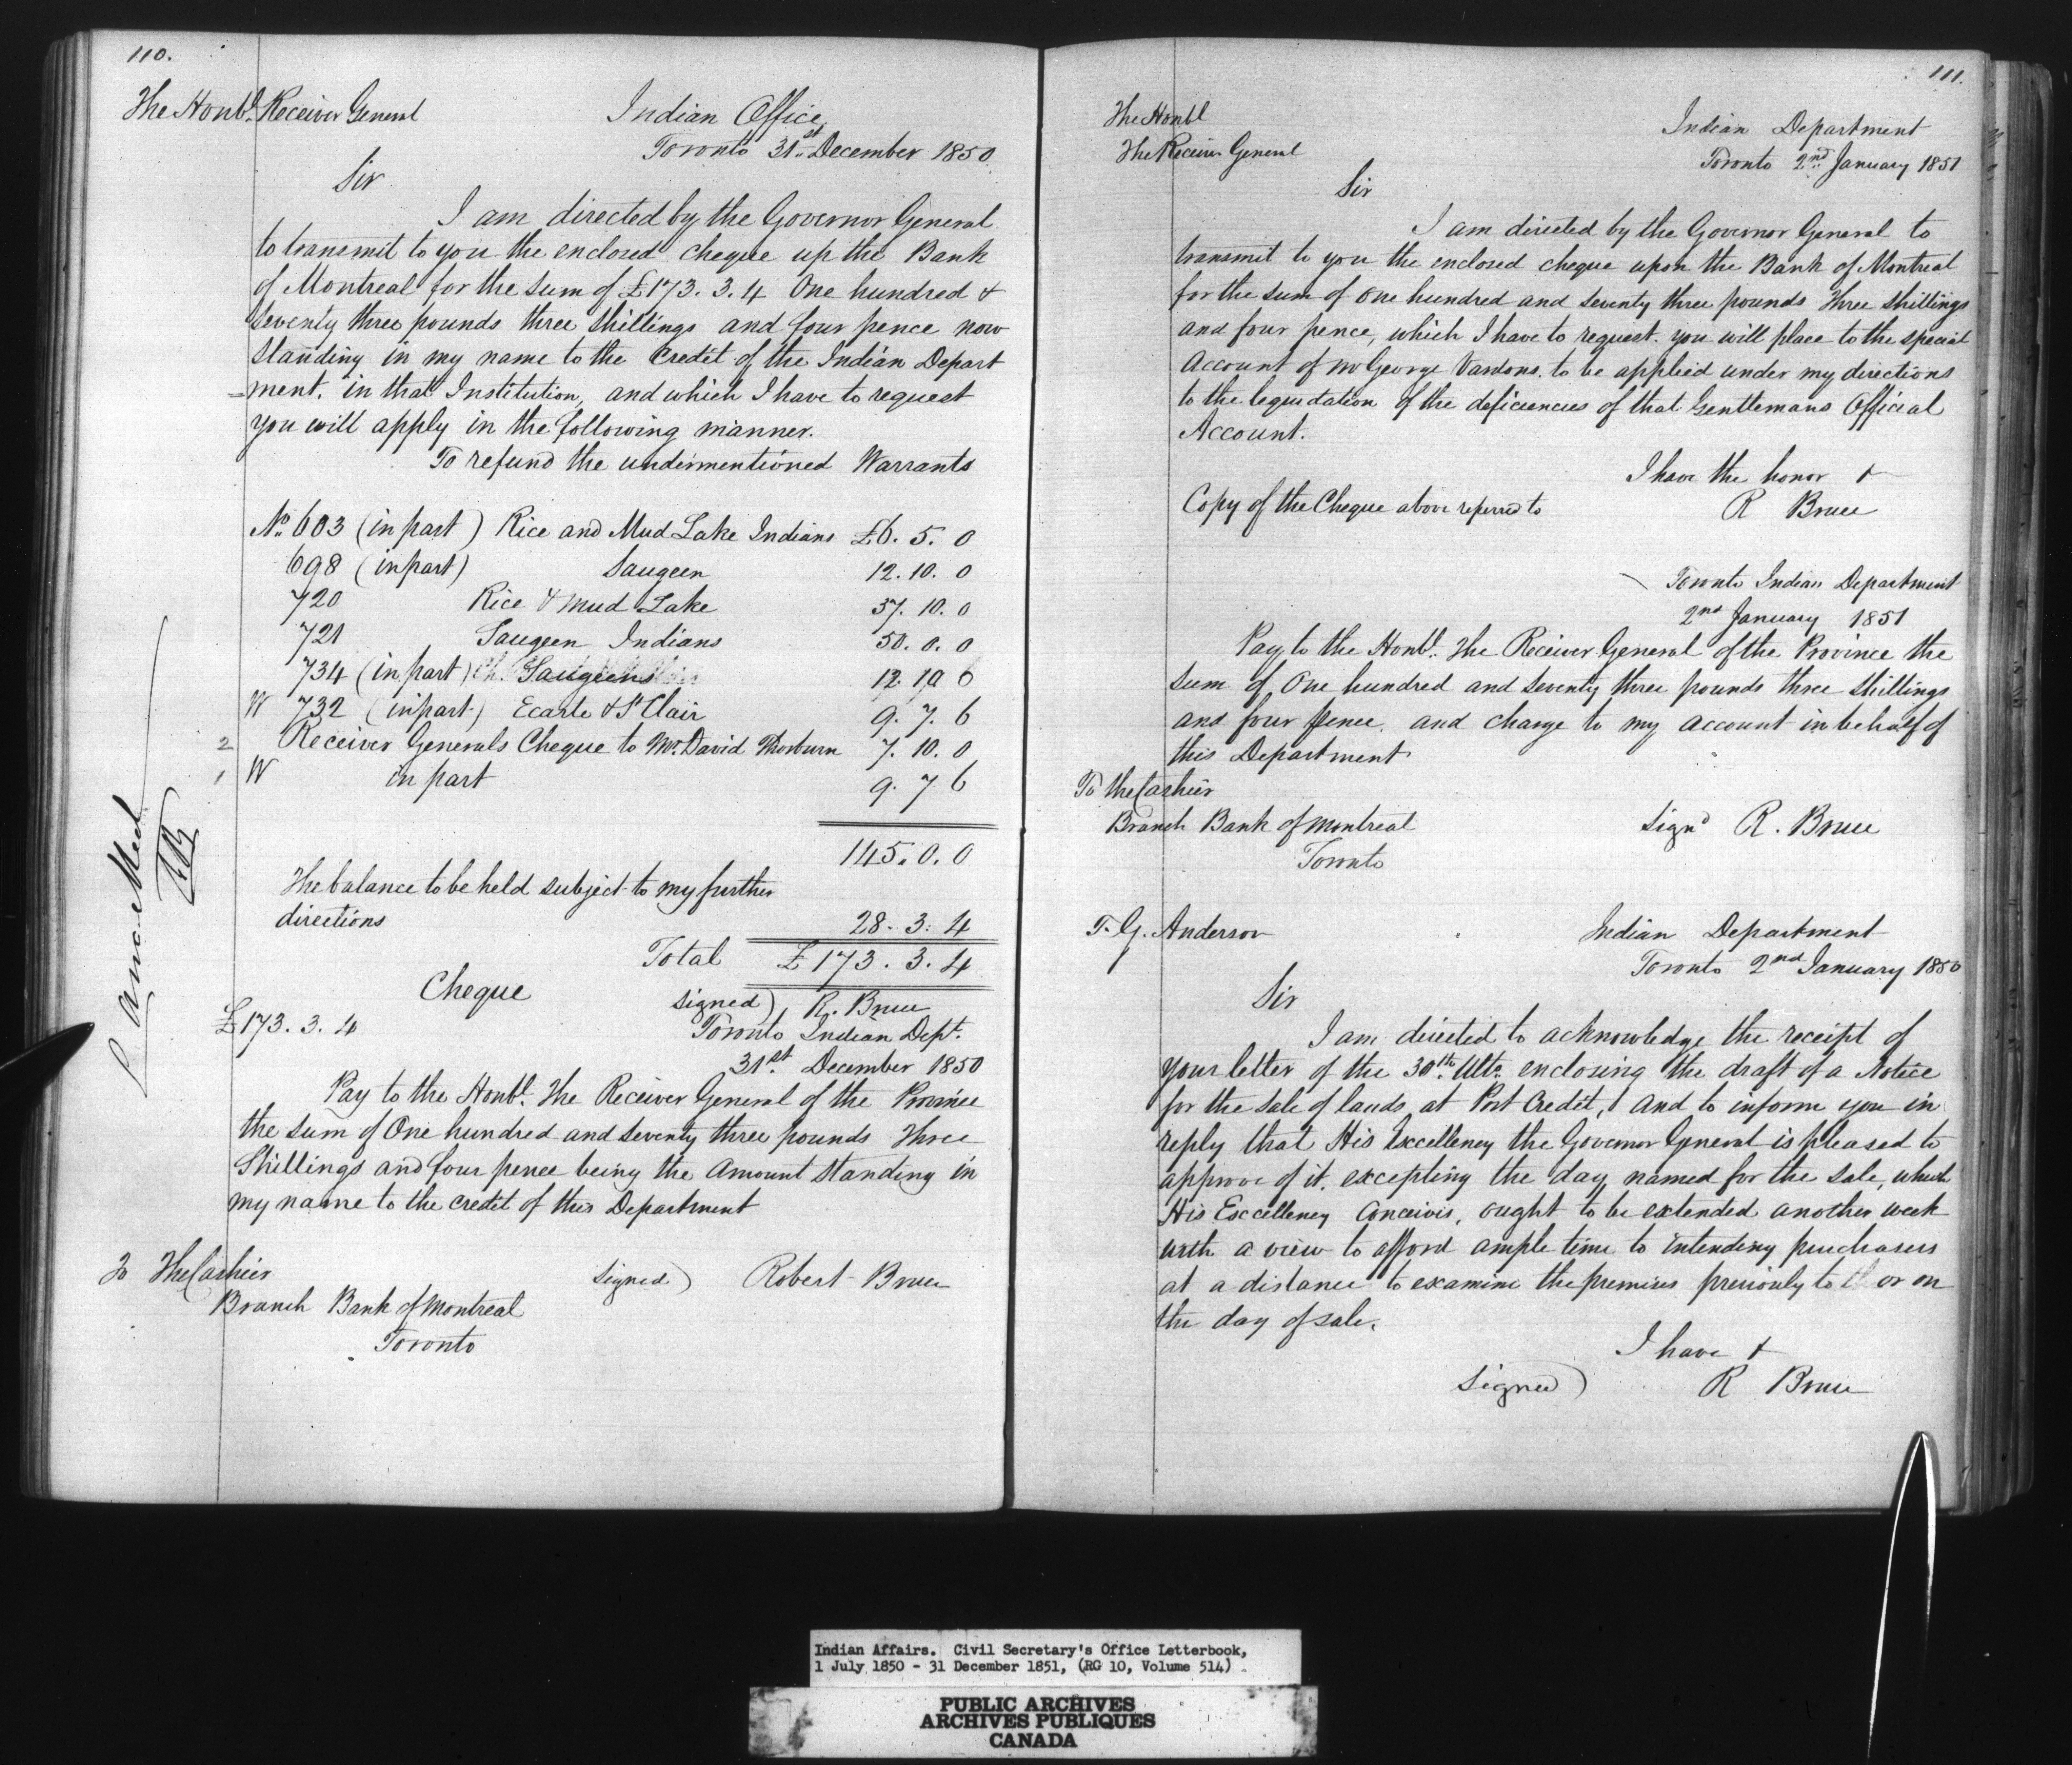 110.
The Honbl. Receiver General
Indian Office,
Toronto 31st December 1850
Sir
I am directed by the Governor General
to transmit to you the enclosed cheque up the Bank
of Montreal for the sum of £173. 3. 4 One hundred &
seventy three pounds three shillings and four pence now
standing in my name to the Credit of the Indian Depart
=ment. in that Institution, and which I have to request
you will apply in the following manner.
To refund the undermentioned Warrants
No. 603 (in part) Rice and Mud Lake Indians £6. 5. 0
698 (in part) Saugeen 12. 10. 0
720 Rice & Mud Lake 37. 10. 0
721 Saugeen Indians 50. 0. 0
734 (in part) Saugeens 12 10 6
W 732 (in part) Ecarte & St Clair 9. 7. 6
2 Receiver Generals Cheque to Mr. David Thorburn 7. 10. 0
1 W in part 9. 7 6
145. 0. 0
The balance to be held subject to my further
directions 28. 3. 4
Total £173. 3. 4
Cheque
signed) R. Bruce
£173. 3. 4
Toronto Indian Dept.
31st. December 1850
Pay to the Honbl. The Receiver General of the Province
the sum of One hundred and seventy three pounds Three
Shillings and four pence being the Amount standing in
my name to the credit of this Department
To The Cashier
signed) Robert Bruce
Branch Bank of Montreal
Toronto
111.
The Honbl
The Receiver General
Indian Department
Toronto 2nd January 1851
Sir
I am directed by the Governor General to
transmit to you the enclosed cheque upon the Bank of Montreal
for the sum of One hundred and seventy three pounds Three shillings
and four pence, which I have to request. you will place to the special
Account of Mr George Vardons. to be applied under my directions
to the lequidation of the deficiencies of that Gentlemans Official
Account.
I have the honor &
R Bruce
Copy of the Cheque above referred to
Toronto Indian Department
2nd January 1851
Pay to the Honbl. The Receiver General of the Province the
sum of One hundred and seventy three pounds three shillings
and four pence. and charge to my account in behalf of
this Department
To The Cashier
Branch Bank of Montreal
Signd R. Bruce
Toronto
T. G. Anderson
Indian Department
Toronto 2nd January 1850
Sir
I am directed to acknowledge the receipt of
your letter of the 30th. Ulto. enclosing the draft of a Notice
for the sale of lands at Port Credit, and to inform you in
reply that His Excellency the Governor General is pleased to
approve of it. excepting the day named for the sale, which
His Excellency Conceives, ought to be extended another week
with a view to afford ample time to intending purchasers
at a distance to examine the premises previously to or on
the day of sale.
I have &
signed) R Bruce
Indian Affairs. Civil Secretary's Office Letterbook,
1 July 1850 - 31 December 1851, (RG 10, Volume 514)
PUBLIC ARCHIVES
ARCHIVES PUBLIQUES
CANADA